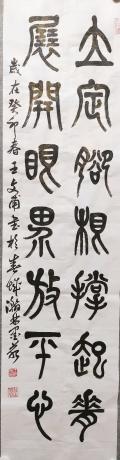 立定脚根撑起脊
展開眼界放平心
歲在癸卯春王文甫書於